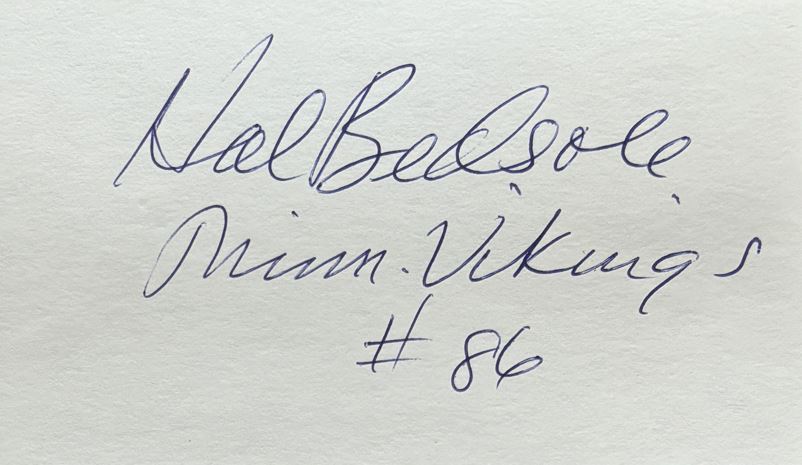 Hal Bedsole
Minn. Vikings
# 86